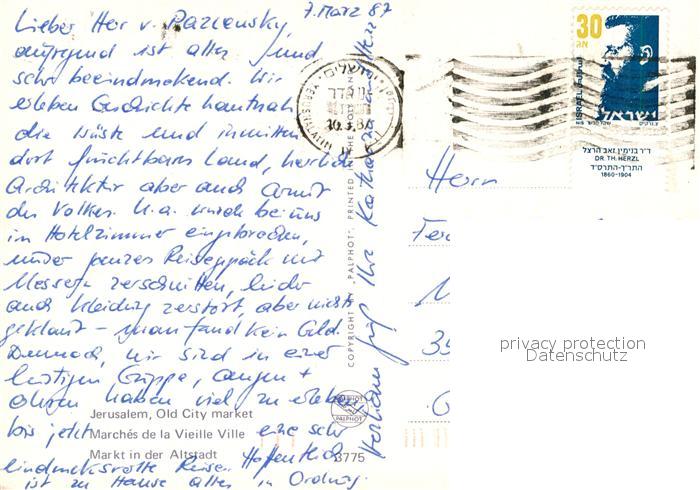 7. März 87
Lieber Herr v. Pazcensky,
aufregend ist alles und
sehr beeindruckend. Wir
erleben Geschichte hautnah
die Wüste und inmitten
dort fruchtbares Land, herrliche
Architektur aber auch Armut
des Volkes. U.a. wurde bei uns
im Hotelzimmer eingebrochen,
unser ganzes Reisegepäck mit
Messern zerschnitten, leider
auch Kleidung zerstört, aber nichts
geklaut – man fand kein Geld.
Dennoch, wir sind in einer
lustigen Gruppe, Augen +
Ohren haben viel zu erleben
bis jetzt eine sehr
eindrucksvolle Reise. Hoffentlich
ist zu Hause alles in Ordnung.
Ihre Katharina
Jerusalem, Old City market
Marchés de la Vieille Ville
Markt in der Altstadt
3775
COPYRIGHT BY "PALPHOT", PRINTED IN THE HOLY
PALPHOT
PALPHOT
ירושלים
30
אג
ISRAEL
ישראל
NIS
ד"ר בנימין זאב הרצל
DR. TH. HERZL
התר"ך-התרס"ד
1860-1904
Herrn
39
privacy protection
Datenschutz